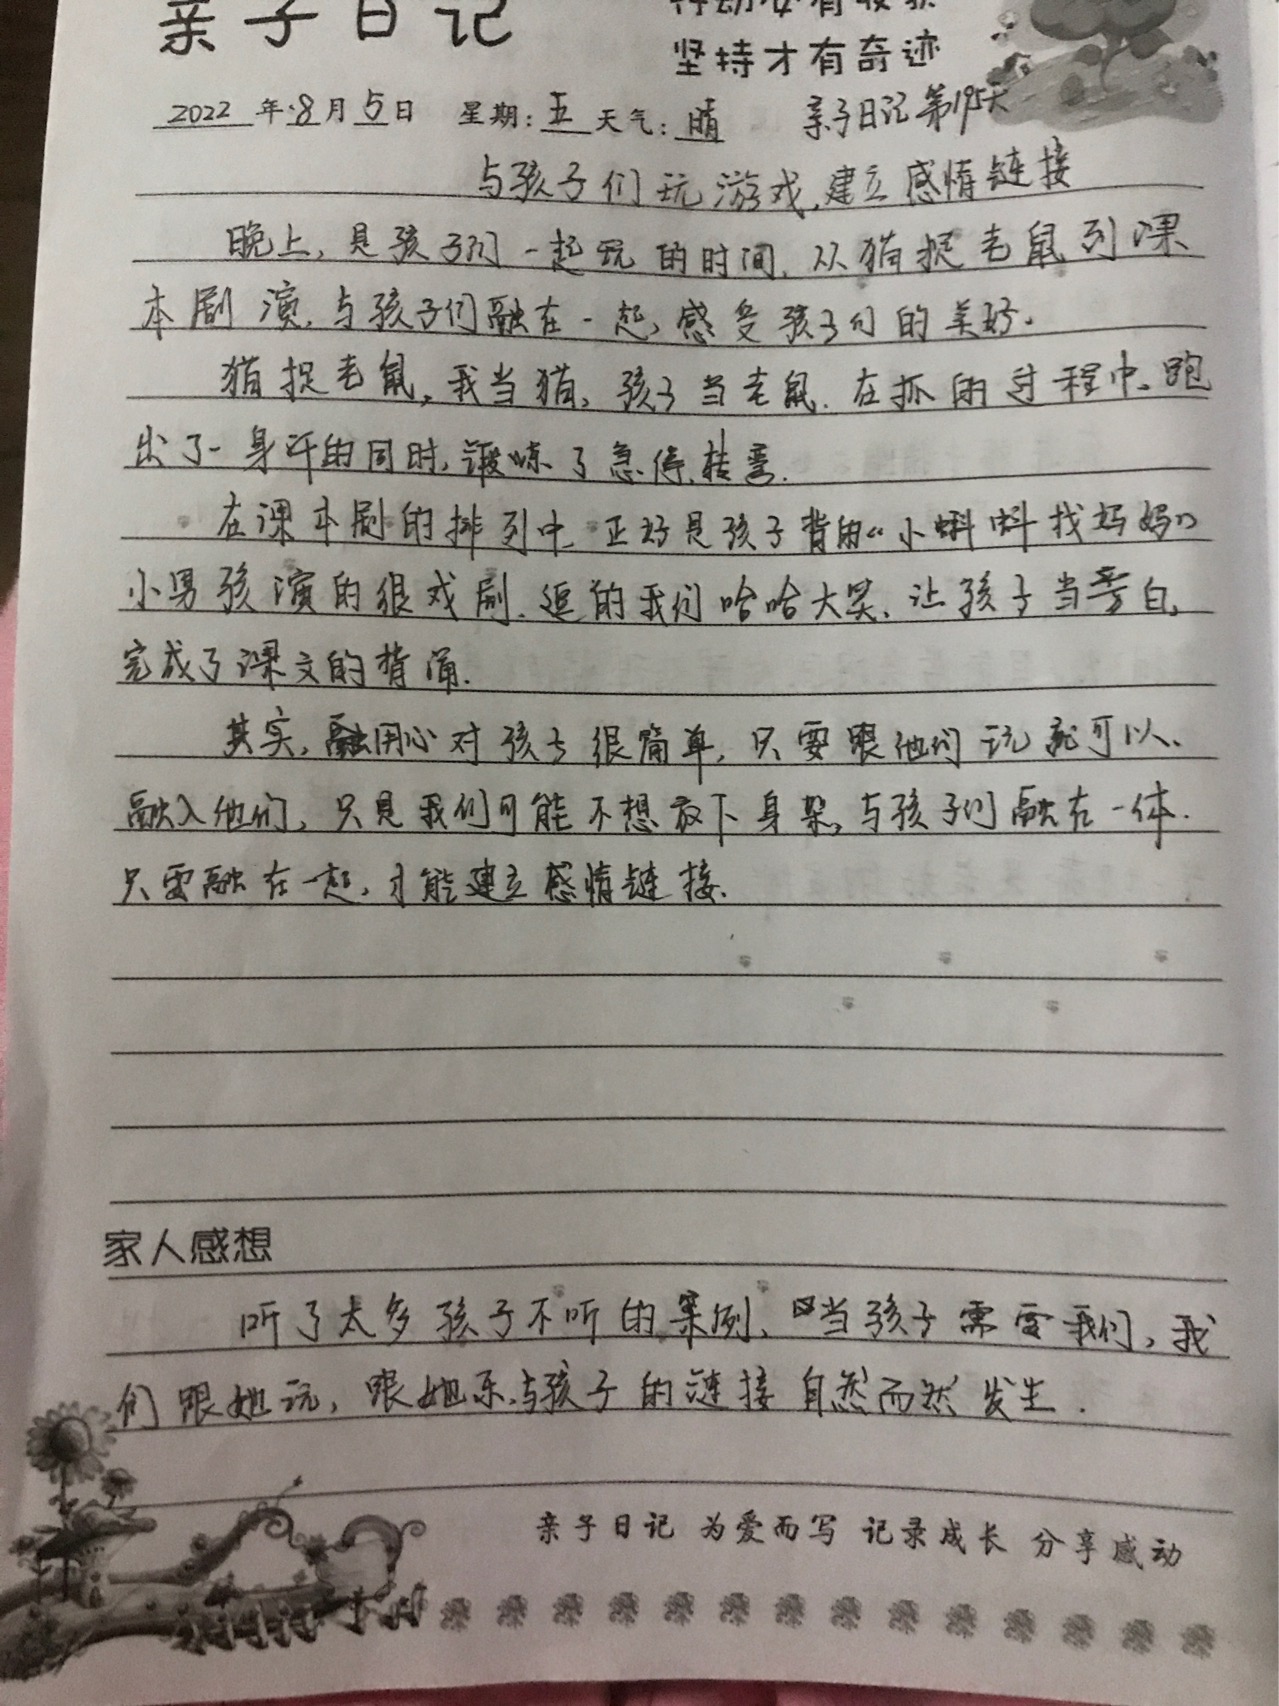 亲子日记
行动必有收获
坚持才有奇迹
2022年8月5日 星期:五 天气:晴 亲子日记第195天
与孩子们玩游戏,建立感情链接
晚上,是孩子们一起玩的时间,从猫捉老鼠到课
本剧演,与孩子们融在一起,感受孩子们的美好。
猫捉老鼠,我当猫,孩子当老鼠.在抓的过程中,跑
出了一身汗的同时,锻炼了急停,转弯.
在课本剧的排列中,正好是孩子背的《小蝌蚪找妈妈》
小男孩演的很戏剧,逗的我们哈哈大笑,让孩子当旁白,
完成了课文的背诵.
其实,融用心对孩子很简单,只要跟他们玩就可以.
融入他们,只是我们可能不想放下身架,与孩子们融在一体.
只要融在一起,才能建立感情链接.
家人感想
听了太多孩子不听的案例,当孩子需要我们,我
们跟她玩,跟她乐,与孩子的链接自然而然发生.
亲子日记 为爱而写 记录成长 分享感动